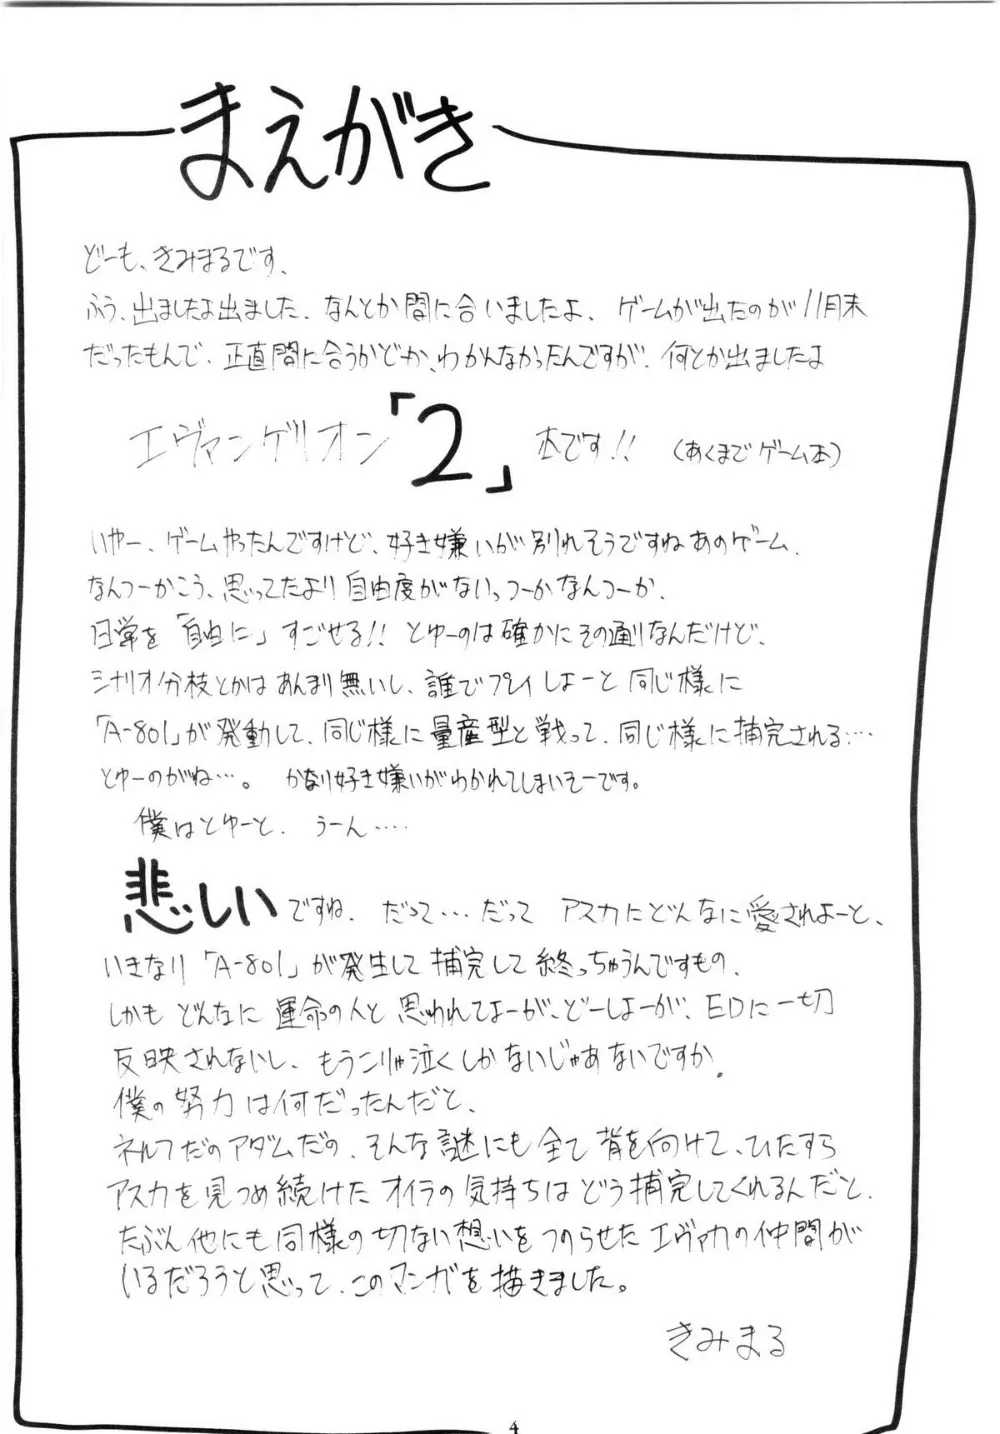 まえがき
どーも、きみまるです、
ふう、出ましたよ出ました、なんとか間に合いましたよ、ゲームが出たのが11月末
だったもんで、正直間に合うかどーか、わかんなかったんですが、何とか出ましたよ
エヴァンゲリオン「2」本です!! (あくまでゲーム本)
いやー、ゲームやったんですけど、好き嫌いが別れそうですねあのゲーム、
なんつーかこう、思ってたより自由度がないっつーかなんつーか、
日常を「自由に」すごせる!! とゆーのは確かにその通りなんだけど、
シナリオ分枝とかはあんまり無いし、誰でプレイしよーと同じ様に
「A-801」が発動して、同じ様に量産型と戦って、同じ様に補完される…
とゆーのがね…。 かなり好き嫌いがわかれてしまいそーです。
僕はとゆーと、うーん‥‥
悲しいですね、だって…だってアスカにどんなに愛されよーと、
いきなり「A-801」が発生して補完して終っちゃうんですもの、
しかもどんなに運命の人と思われてよーが、どーしよーが、EDに一切
反映されないし、もうこりゃ泣くしかないじゃあないですか、
僕の努力は何だったんだと、
ネルフだのアダムだの、そんな謎にも全て背を向けて、ひたすら
アスカを見つめ続けたオイラの気持ちはどう補完してくれるんだと、
たぶん他にも同様の切ない想いをつのらせたエヴァカの仲間が
いるだろうと思って、このマンガを描きました。
きみまる
4